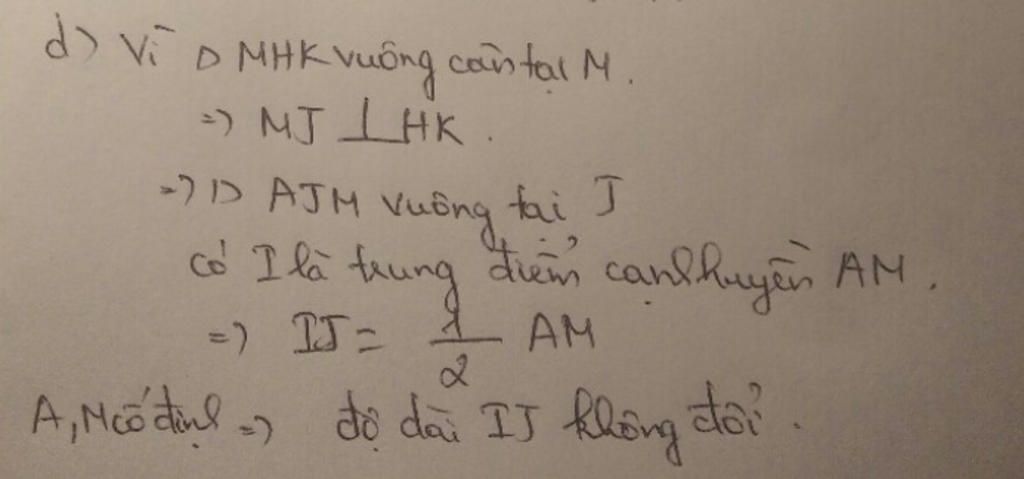 d) Vì Δ MHK vuông cân tại M.
=> MJ ⊥ HK.
=> Δ AJM vuông tại J
có I là trung điểm cạnh huyền AM.
=> IJ = 1/2 AM
A, M cố định => độ dài IJ không đổi.